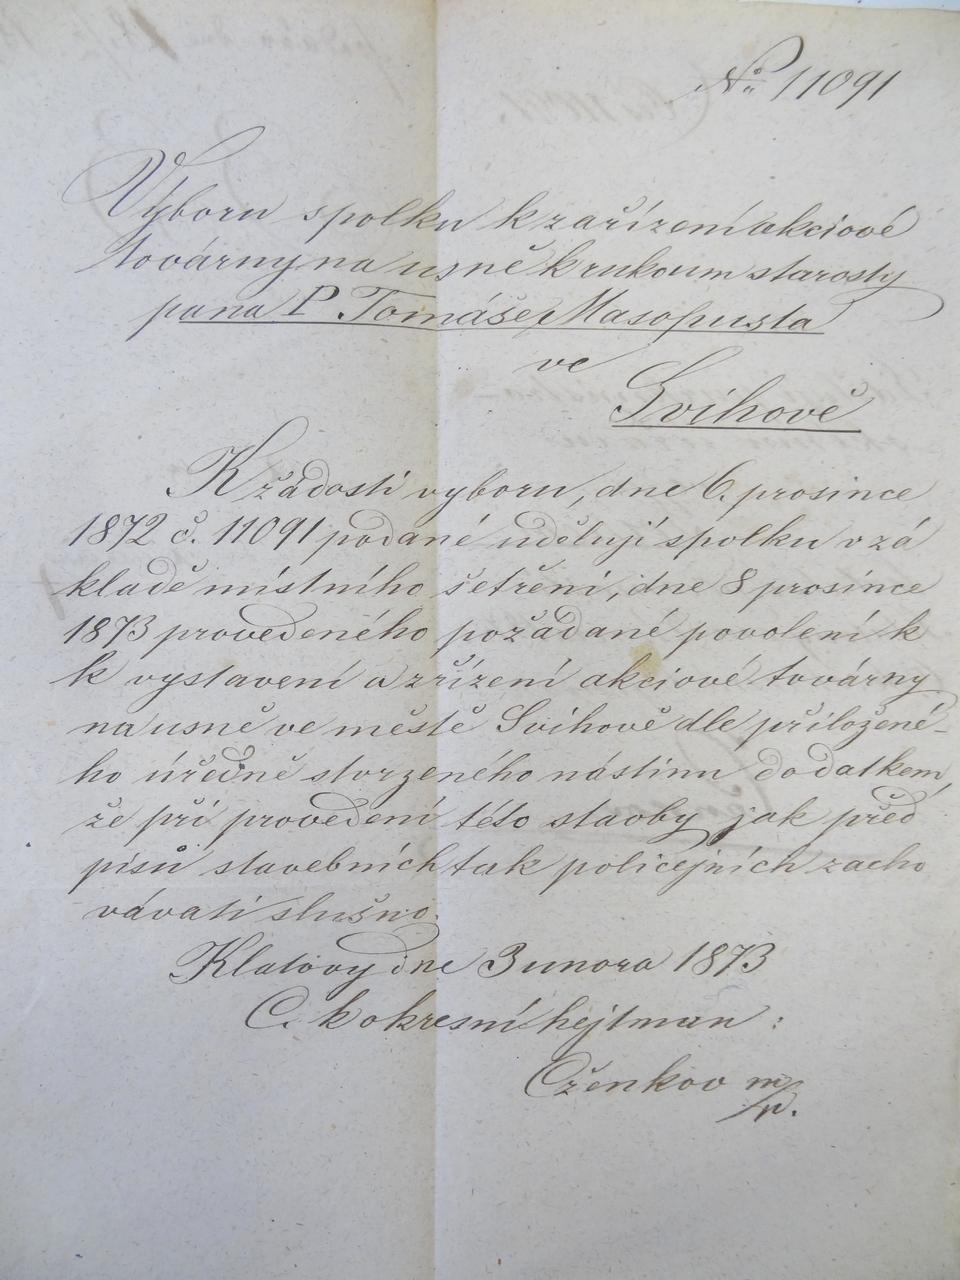 No 11091
Výboru spolku k zařízení akciové
továrny na usně k rukoum starosty
pana P. Tomáše Masopusta
ve
Švihově
K žádosti vyboru, dne 6. prosince
1872 č. 11091 podané uděluji spolku v zá
kladě místního šetření, dne 8 prosince
1873 provedeného požádané povolení k
k vystavení a zřízení akciové továrny
na usně ve městě Švihově dle přiložené-
ho úředně stvrzeného nástinu dodatkem,
že při provedení této stavby jak před
pisů stavebních tak policejních zacho
vávati slušno.
Klatovy dne 3 unora 1873
C. k okresní hejtman:
m/p.